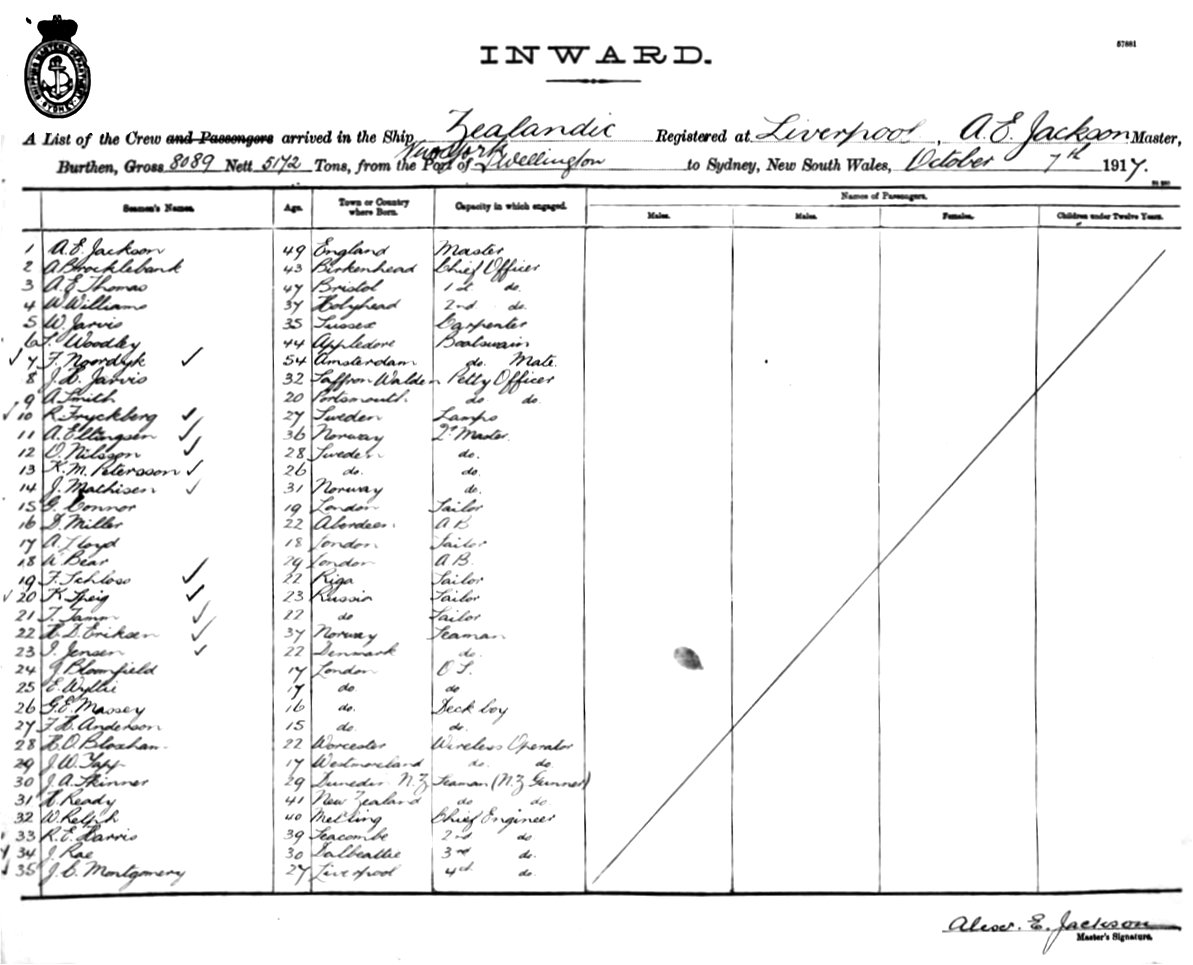 SHIPPING MASTERS DEPARTMENT SYDNEY
INWARD.
57881
A List of the Crew and Passengers arrived in the Ship Zealandic Registered at Liverpool, A.E. Jackson Master,
Burthen, Gross 8089 Nett 5172 Tons, from the Port of New York & Wellington to Sydney, New South Wales, October 7th 1917.
Seamen's Names. Age. Town or Country where Born. Capacity in which engaged. Names of Passengers.
Males. Males. Females. Children under Twelve Years.
1 A.E. Jackson 49 England Master
2 A Brocklebank 43 Birkenhead Chief Officer
3 A.E. Thomas 47 Bristol 1st do.
4 W Williams 37 Holyhead 2nd do.
5 W. Jarvis 35 Sussex Carpenter
6 Woodley 44 Appledore Boatswain
✓ 7 F. Noordyk ✓ 54 Amsterdam do. Mate
8 J.H. Jarvis 32 Saffron Walden Petty Officer
9 A Smith 20 Portsmouth do do.
✓ 10 R. Fryckberg ✓ 27 Sweden Lamps
11 A. Ellingsen ✓ 36 Norway Qr Master.
12 O. Nilsson ✓ 28 Sweden do.
13 K.M. Petersson ✓ 26 do. do.
14 J. Mathisen ✓ 31 Norway do.
15 G. Connor 19 London Sailor
16 D. Miller 22 Aberdeen. A B
17 A Lloyd 18 London Sailor
18 W Bear 29 London A.B.
19 F. Schloss ✓ 22 Riga Sailor
✓ 20 K. Speig ✓ 23 Russia Sailor
21 T. Tamm ✓ 22 do Sailor
22 H.D. Eriksen ✓ 37 Norway Seaman
23 J. Jensen ✓ 22 Denmark do.
24 J Bloomfield 17 London O S.
25 E. Wyllie 17 do do
26 G.E. Massey 16 do. Deck boy
27 F.H. Anderson 15 do. do.
28 H.O. Bloxham. 22 Worcester Wireless Operator
29 J.W. Tapp 17 Westmoreland do. do.
30 J.A. Skinner 29 Dunedin N.Z Seaman (N.Z Gunner)
31 H. Ready 41 New Zealand do do.
32 W. Relph 40 Melling Chief Engineer
33 R.E. Harris 39 Seacombe 2nd do
✓ 34 J. Rae 30 Dalbeattie 3rd do.
✓ 35 J.C. Montgomery 27 Liverpool 4th do.
Alexr. E. Jackson
Master's Signature.